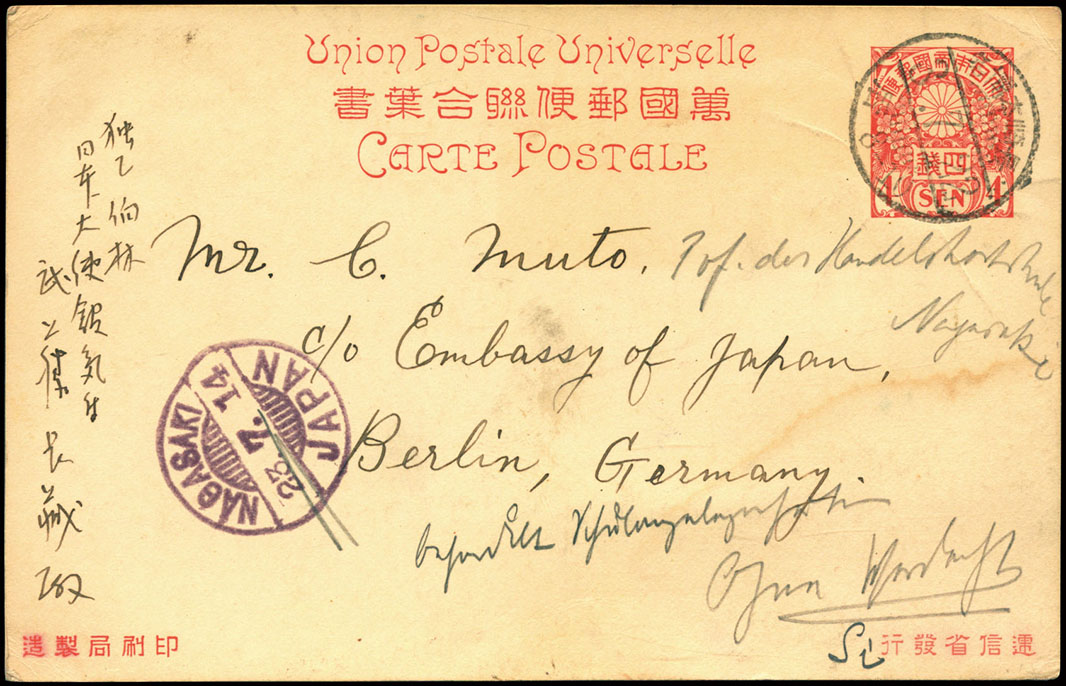 Union Postale Universelle
書葉合聯便郵國萬
CARTE POSTALE
便郵國帝本日大
四錢
4 SEN 4
独乙伯林
日本大使館気付
武藤長蔵殿
Mr. C. Muto,
Prof. der Handelshochschule
Nagasaki
c/o Embassy of Japan,
Berlin, Germany.
NAGASAKI
23. 7. 14
JAPAN
behandelt Schulangelegenheiten
Ohne Verdacht
造製局刷印
行發省信遞